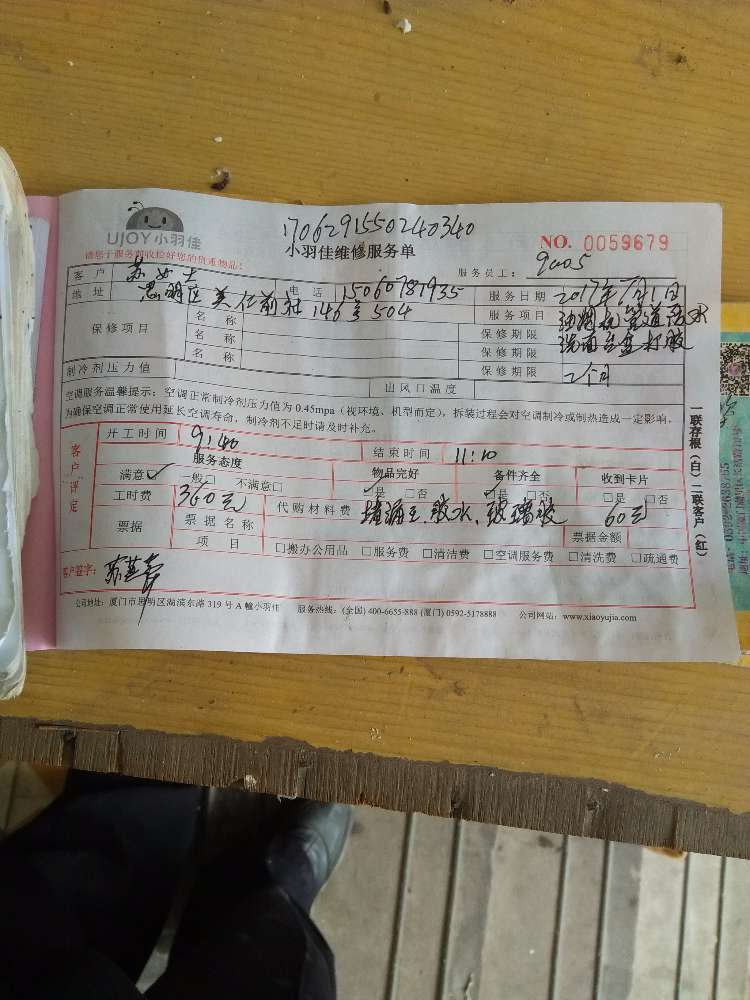 170629155024034​0
UJOY小羽佳
小羽佳维修服务单
NO. 0059679
请您于服务前收捡好您的贵重物品!
服务员工: 9005
客户 苏女士 电话 15060787935 服务日期 2017年7月1日
地址 思明区美仁前社146号504 服务项目 油烟机管道漏水
保修项目 名称 保修期限 洗面台盆打胶
名称 保修期限
名称 保修期限 2个月
制冷剂压力值 出风口温度
空调服务温馨提示:空调正常制冷剂压力值为 0.45mpa(视环境、机型而定),拆装过程会对空调制冷或制热造成一定影响,
为确保空调正常使用延长空调寿命,制冷剂不足时请及时补充。
客户评定
开工时间 9:40 结束时间 11:10
服务态度 物品完好 备件齐全 收到卡片
满意✓ 一般□ 不满意□ ☑是 □否 ☑是 □否 □是 □否
工时费 360元 代购材料费 堵漏王、胶水、玻璃胶 60元
票据 票据名称 票据金额
项目 □搬办公用品 □服务费 □清洁费 □空调服务费 □清洗费 □疏通费
客户签字:
公司地址:厦门市思明区湖滨东路 319 号 A 幢小羽佳 服务热线:(全国) 400-6655-888 (厦门) 0592-5178888 公司网站:www.xiaoyujia.com
一联存根(白)二联客户(红)